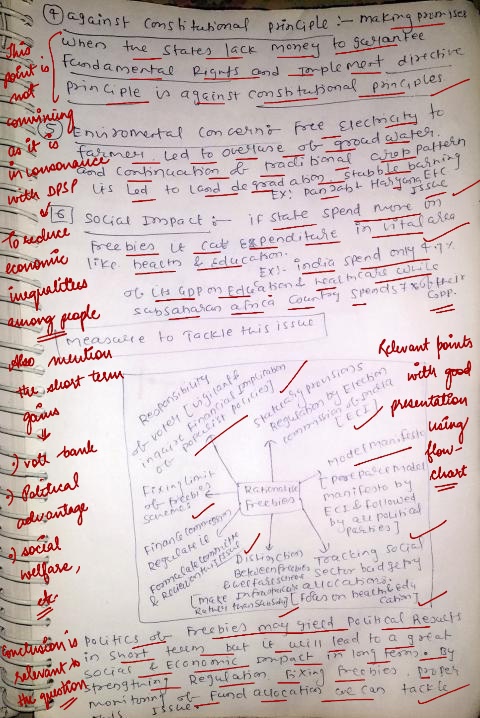 ④ against Constitutional principle :- making promises
When the States lack money to garantee
Fundamental Rights and implement directive
principle is against Constitutional principles
This
point is
not
convining
as it is
in consonance
with DPSP
To reduce
economic
inequalities
among people
Also mention
the short term
gains
•) vote bank
•) Political
advantage
•) social
welfare,
etc
⑤ Enviromental Concern: Free Electricity to
farmer. Led to overuse of groud water.
and Continuation of traditional crop pattern
its led to land degradation. Stubble burning
Ex: Panjabt Haryana Etc Issue
6 Social Impact :- if state spend more on
Freebies it cat Expenditure in vital area
like health & Education.
Ex:- india spend only 4.7%
of its GDP on Education & healthcare while
subsaharan africa Country spends 7% of their
GDP.
Measure to Tackle this issue
Responsibility
of voter [vigilant &
inquire Financial implication
of populist policies]
Statutory provisions
Regulation by Election
commission of india
[ECI]
Model manifesto
[prepare model
manifesto by
ECI & followed
by all political
parties]
Rationalise
Freebies
Fixing limit
of freebies
schemes
Finance Commission
Regulate it
Formulate committe
& Review on this issue
Distinction
Between freebies
& welfare scheme
[make infrastructure
Rather than subsidy]
Tracking social
sector budgetry
allocation:
[Focus on health & Edu
cation]
Relevant points
with good
presentation
using
flow-
chart
Conclusion is
relevant to
the question
Politics of Freebies may yield political Results
in short term but it will lead to a great
social & Economic impact in long term. By
strengthning Regulation Fixing Freebies, proper
monitoring of Fund allocation we can tackle
this Issue.